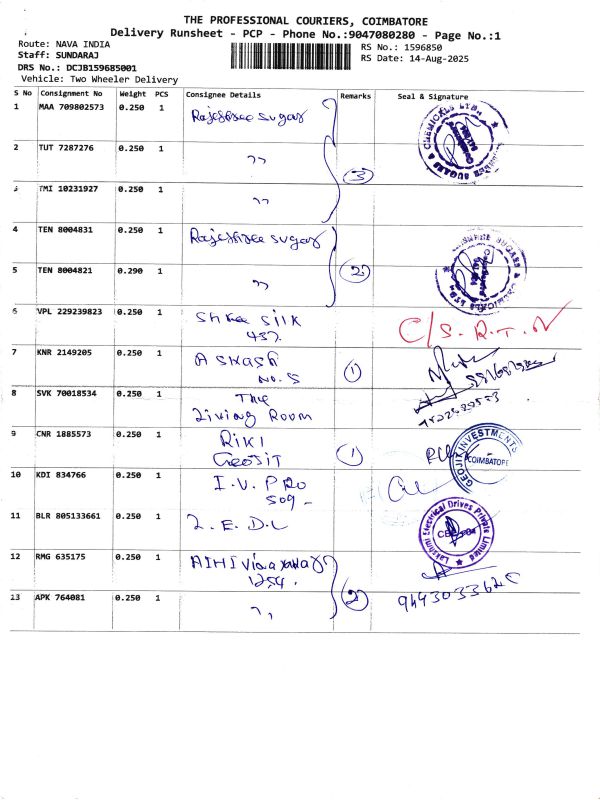 THE PROFESSIONAL COURIERS, COIMBATORE
Delivery Runsheet - PCP - Phone No.:9047080280 - Page No.:1
Route: NAVA INDIA
RS No.: 1596850
Staff: SUNDARAJ
RS Date: 14-Aug-2025
DRS No.: DCJB159685001
Vehicle: Two Wheeler Delivery
S No Consignment No Weight PCS Consignee Details Remarks Seal & Signature
1 MAA 709802573 0.250 1 Rajeshree sugar
2 TUT 7287276 0.250 1 ,,
3
3 TMI 10231927 0.250 1 ,,
4 TEN 8004831 0.250 1 Rajeshree sugar
2
5 TEN 8004821 0.290 1 ,,
6 VPL 229239823 0.250 1 Shree Silk
437
C/S.R.T.N
7 KNR 2149205 0.250 1 Akash
No. 5
1
8 SVK 70018534 0.250 1 The
Living Room
9 CNR 1885573 0.250 1 RIKI
Geojit
1
GEOJIT INVESTMENTS
COIMBATORE
10 KDI 834766 0.250 1 I.V. PRO
509
11 BLR 805133661 0.250 1 L.E.D.L
Lakshmi Electrical Drives Private Limited
12 RMG 635175 0.250 1
1254.
2
13 APK 764081 0.250 1 ,,